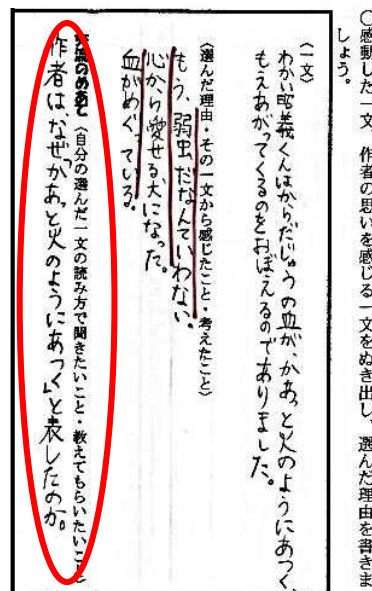 ○感動した一文、作者の思いを感じる一文をぬき出し、選んだ理由を書きま
しょう。
〈一文〉
わかい昭義くんはからだじゅうの血が、かあっと火のようにあつく、
もえあがってくるのをおぼえるのでありました。
〈選んだ理由・その一文から感じたこと・考えたこと〉
もう、弱虫だなんていわない。
心から愛せる犬になった。
血がめぐっている。
交流のめあて〈自分の選んだ一文の読み方で聞きたいこと・教えてもらいたいこと〉
作者は、なぜ「かあっと火のようにあつく」と表したのか。